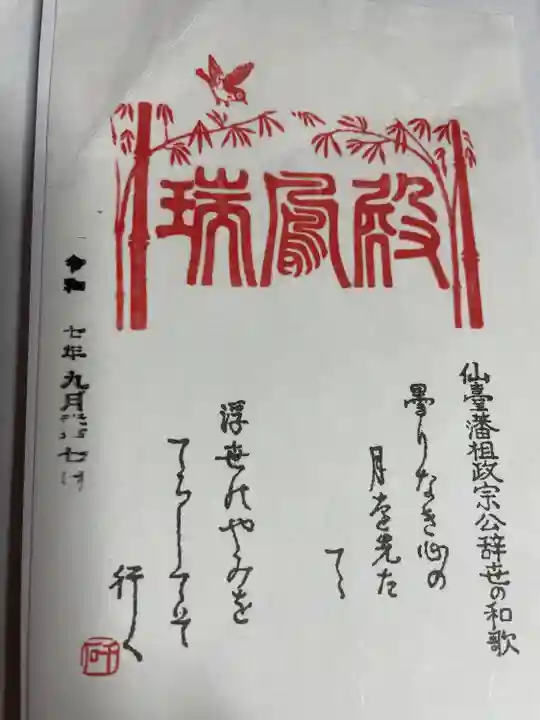 瑞鳳殿
仙臺藩祖政宗公辞世の和歌
曇りなき心の
月を先た
てゝ
浮世のやみを
てらしてそ
行く
令和
七年九月
七日